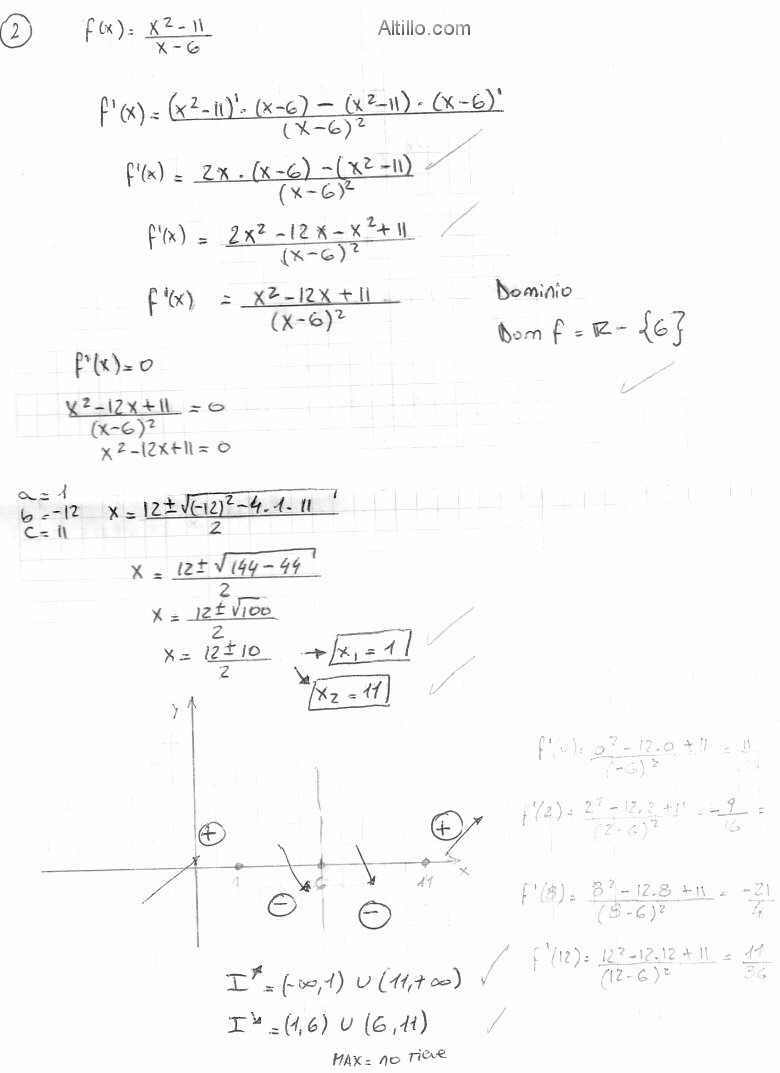 2 f(x) = (x² - 11)/(x - 6)
Altillo.com
f'(x) = ((x² - 11)' · (x - 6) - (x² - 11) · (x - 6)')/(x - 6)²
f'(x) = (2x · (x - 6) - (x² - 11))/(x - 6)²
f'(x) = (2x² - 12x - x² + 11)/(x - 6)²
f'(x) = (x² - 12x + 11)/(x - 6)²
Dominio
Dom f = ℝ - {6}
f'(x) = 0
(x² - 12x + 11)/(x - 6)² = 0
x² - 12x + 11 = 0
a = 1
b = -12
c = 11
x = (12 ± √((-12)² - 4 · 1 · 11))/2
x = (12 ± √(144 - 44))/2
x = (12 ± √100)/2
x = (12 ± 10)/2 → x₁ = 1
↘ x₂ = 11
y
+ +
1 6 11 x
- -
f'(0) = (0² - 12.0 + 11)/(-6)² = 11
f'(2) = (2² - 12.2 + 11)/(2 - 6)² = -9/16 =
f'(8) = (8² - 12.8 + 11)/(8 - 6)² = -21/4
f'(12) = (12² - 12.12 + 11)/(12 - 6)² = 11/36
I↗ = (-∞, 1) ∪ (11, +∞)
I↘ = (1, 6) ∪ (6, 11)
MAX = no tiene